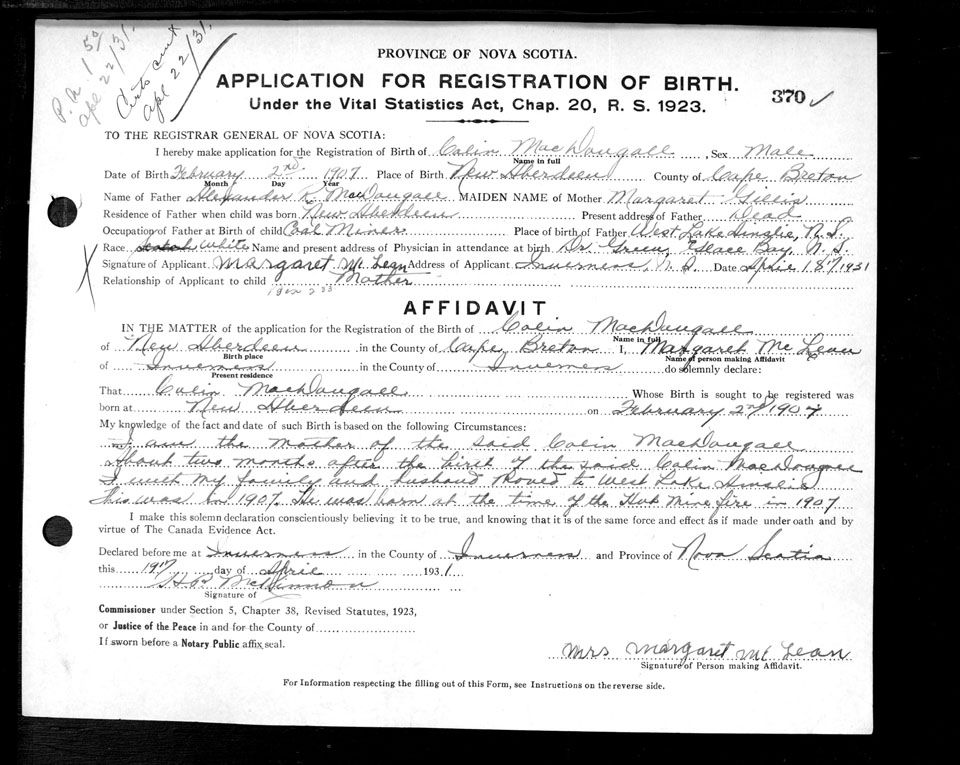 P.N. 1 50
Apl 22/31.
Certs sent
Apl 22/31.
PROVINCE OF NOVA SCOTIA.
APPLICATION FOR REGISTRATION OF BIRTH.
370 ✓
Under the Vital Statistics Act, Chap. 20, R. S. 1923.
TO THE REGISTRAR GENERAL OF NOVA SCOTIA:
I hereby make application for the Registration of Birth of Colin MacDougall, Sex Male
Name in full
Date of Birth February 2nd 1907 Place of Birth New Aberdeen County of Cape Breton
Month Day Year
Name of Father Alexander R. MacDougall MAIDEN NAME of Mother Margaret Gillis
Residence of Father when child was born New Aberdeen Present address of Father Dead
Occupation of Father at Birth of child Coal Miner Place of birth of Father West Lake Ainslie, N.S.
Race Scotch White Name and present address of Physician in attendance at birth Dr Green, Glace Bay, N.S.
X Signature of Applicant Margaret Mc Lean Address of Applicant Inverness N.S. Date April 18th 1931
Relationship of Applicant to child Mother
AFFIDAVIT
IN THE MATTER of the application for the Registration of the Birth of Colin MacDougall
Name in full
of New Aberdeen in the County of Cape Breton I, Margaret Mc Lean
Birth place Name of person making Affidavit
of Inverness in the County of Inverness do solemnly declare:
Present residence
That Colin MacDougall Whose Birth is sought to be registered was
born at New Aberdeen on February 2nd 1907
My knowledge of the fact and date of such Birth is based on the following Circumstances:
I am the mother of the said Colin MacDougall
About two months after the birth of the said Colin MacDougall
I with my family and husband moved to West Lake Ainslie
This was in 1907. He was born at the time of the Hub Mine fire in 1907
I make this solemn declaration conscientiously believing it to be true, and knowing that it is of the same force and effect as if made under oath and by
virtue of The Canada Evidence Act.
Declared before me at Inverness in the County of Inverness and Province of Nova Scotia
this 19th day of April 1931
McKinnon
Signature of
Commissioner under Section 5, Chapter 38, Revised Statutes, 1923,
or Justice of the Peace in and for the County of
If sworn before a Notary Public affix seal.
Mrs Margaret Mc Lean
Signature of Person making Affidavit.
For Information respecting the filling out of this Form, see Instructions on the reverse side.